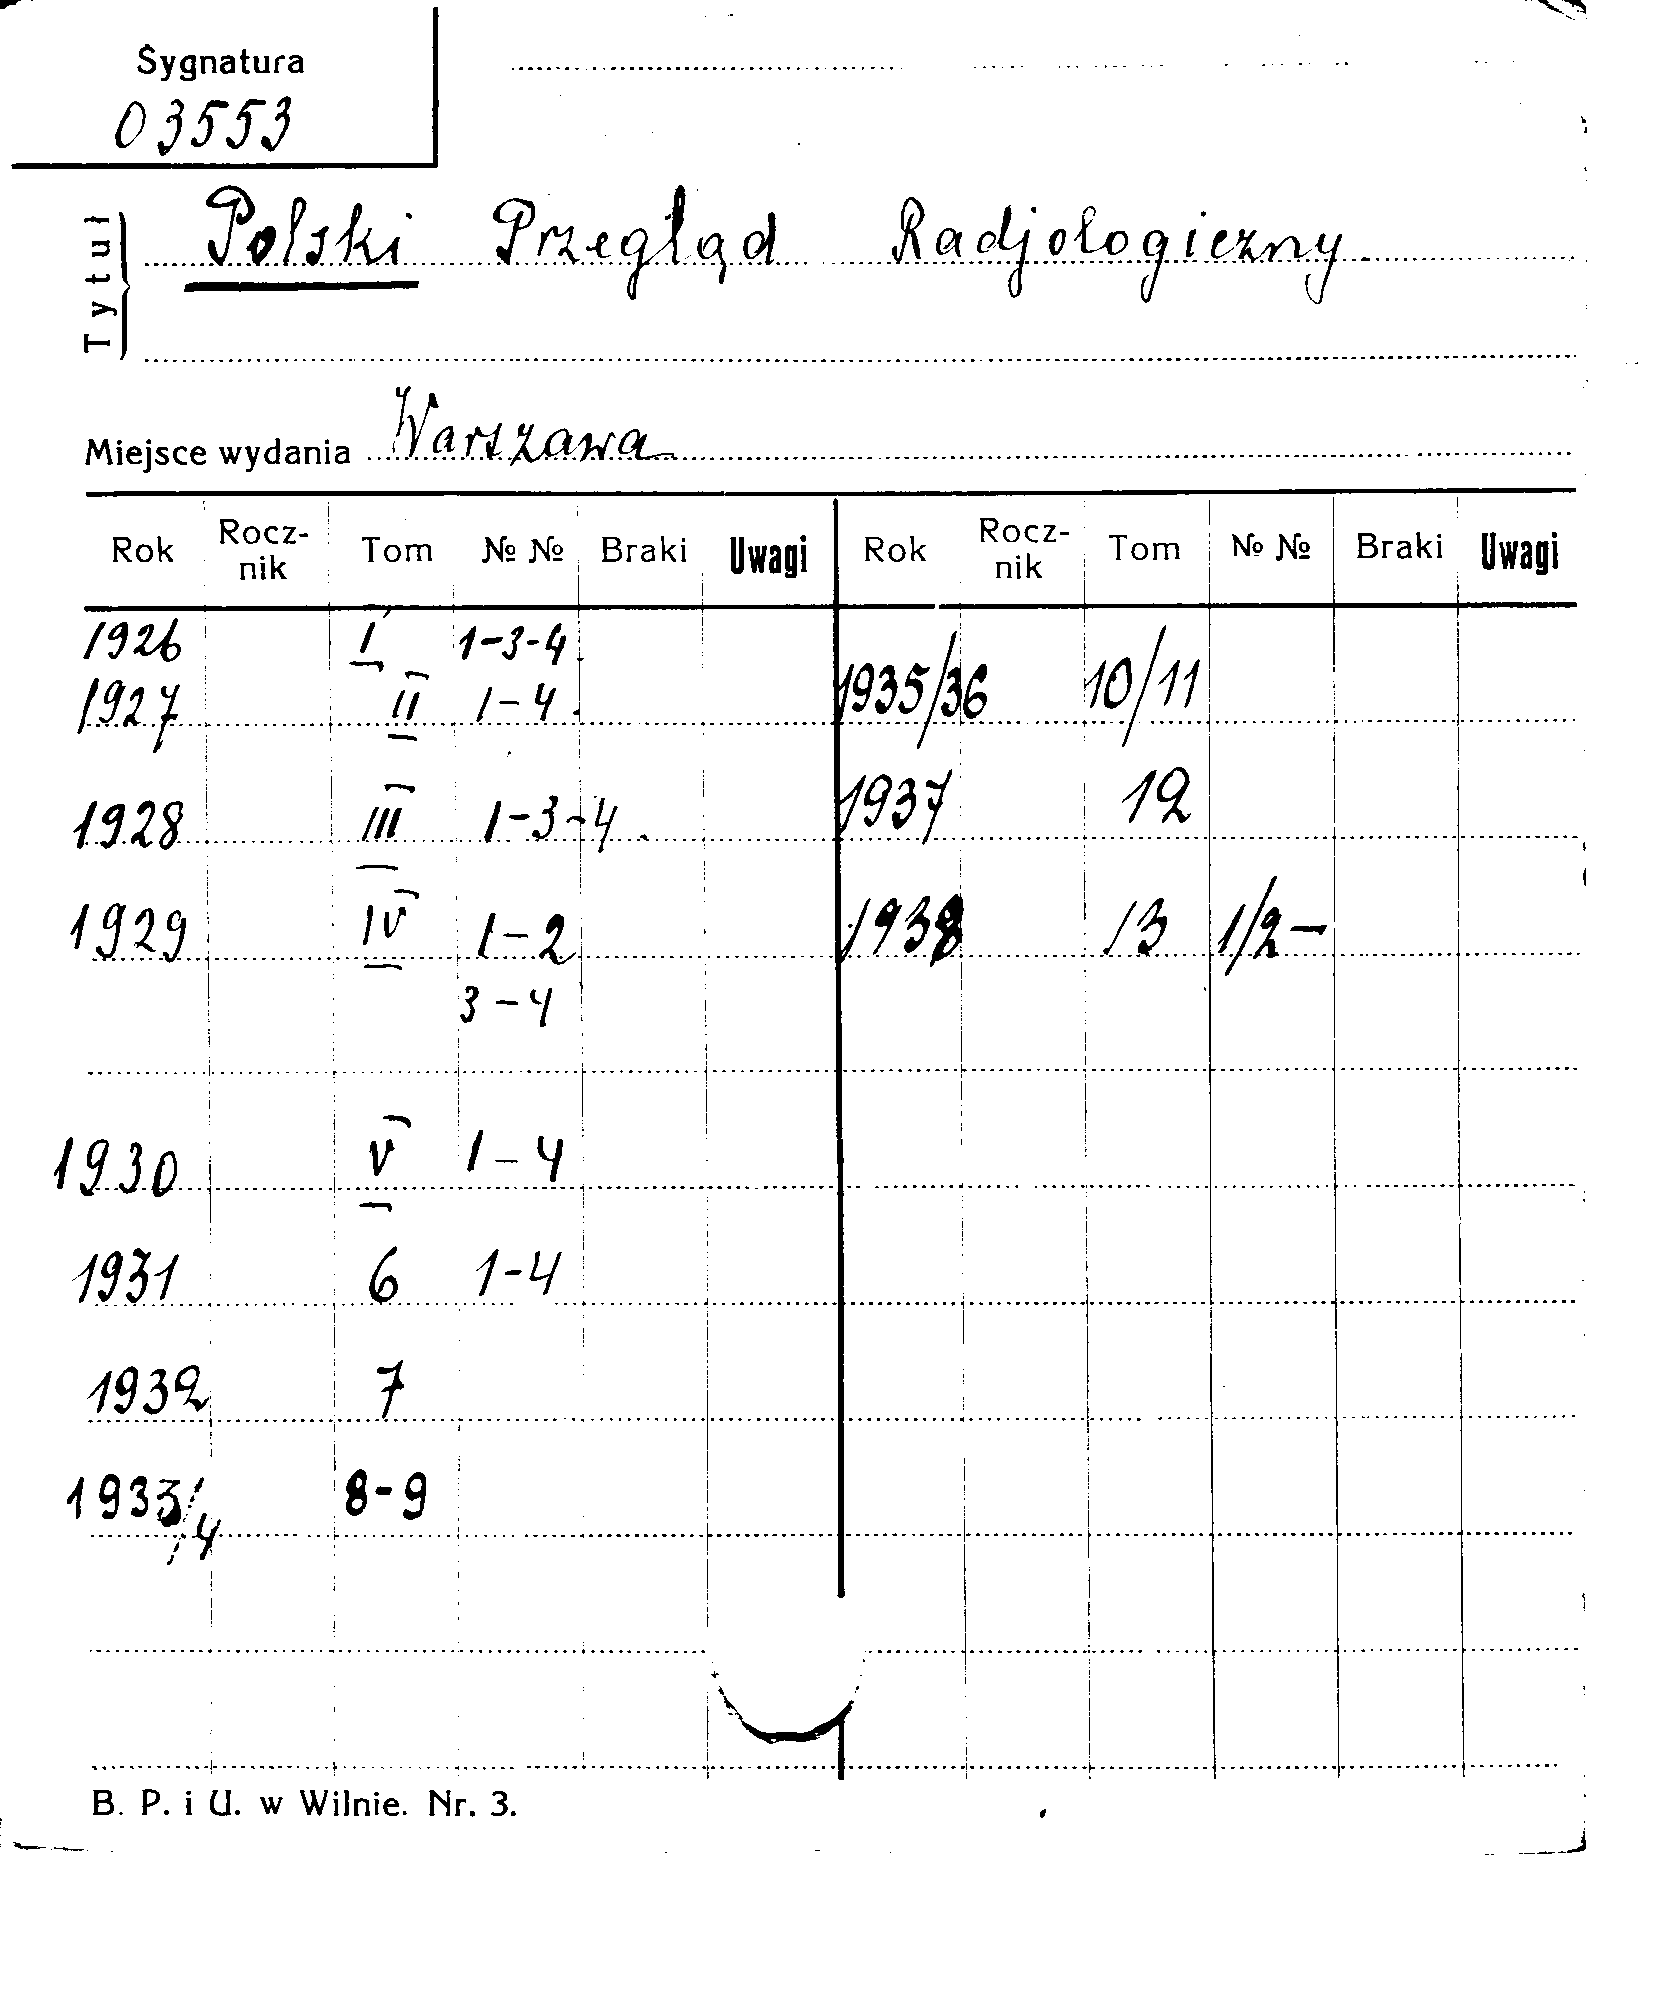 Sygnatura
03553
Tytuł
Polski Przegląd Radjologiczny
Miejsce wydania Warszawa
Rok Rocz-nik Tom № № Braki Uwagi Rok Rocz-nik Tom № № Braki Uwagi
1926 I 1-3-4.
1927 II 1-4. 1935/36 10/11
1928 III 1-3-4. 1937 12
1929 IV 1-2 1938 13 1/2-
3-4
1930 V 1-4
1931 6 1-4
1932 7
1933/4 8-9
B. P. i U. w Wilnie. Nr. 3.